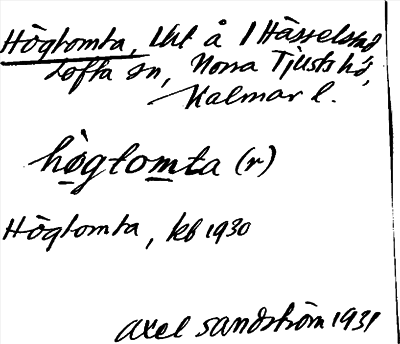 Högtomta, lht å 1 Hässelstad
Lofta sn, Norra Tjusts hd,
Kalmar l.
hògtomta (r)
Högtomta, kb 1930
Axel Sandström 1931